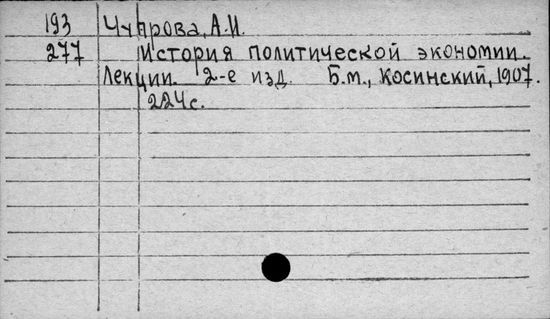 193 Чупрова, А.И.
277 История политической экономии.
Лекции. 2-е изд. Б.м., Косинский, 1907.
224с.